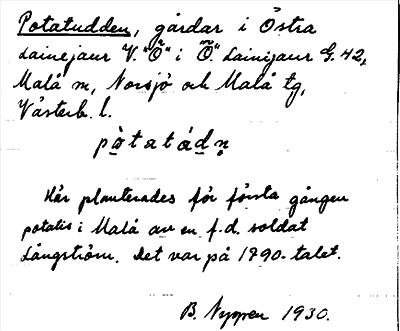 Potatudden, gårdar i Östra
Lainejaur V. "Ö" i Ö. Lainijaur G. 42,
Malå sn, Norsjö och Malå tg,
Västerb. l.
pò̱tatádn̥
Här planterades för första gången
potatis i Malå av en f.d. soldat
Långström. Det var på 1790-talet.
B. Nygren 1930.